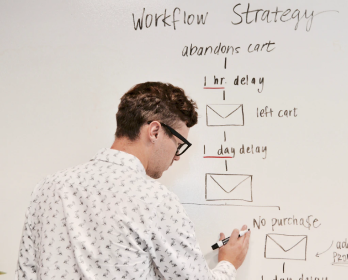 Workflow Strategy
abandons cart
1 hr delay
left cart
1 day delay
No purchase
1 day delay